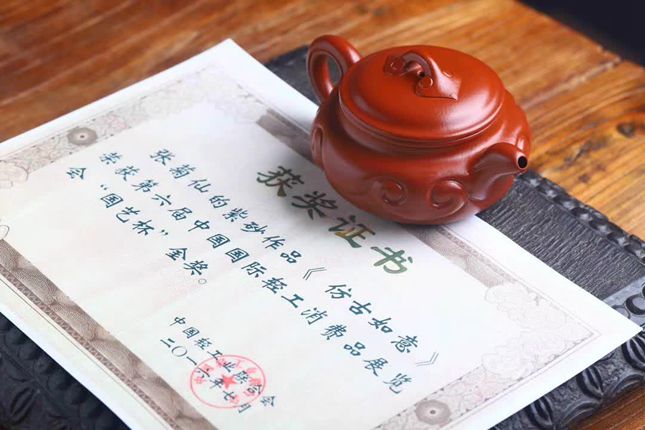 获奖证书
张菊仙的紫砂作品《仿古如意》
荣获第六届中国国际轻工消费品展览
会“国艺杯”金奖。
中国轻工业联合会
二〇一三年七月